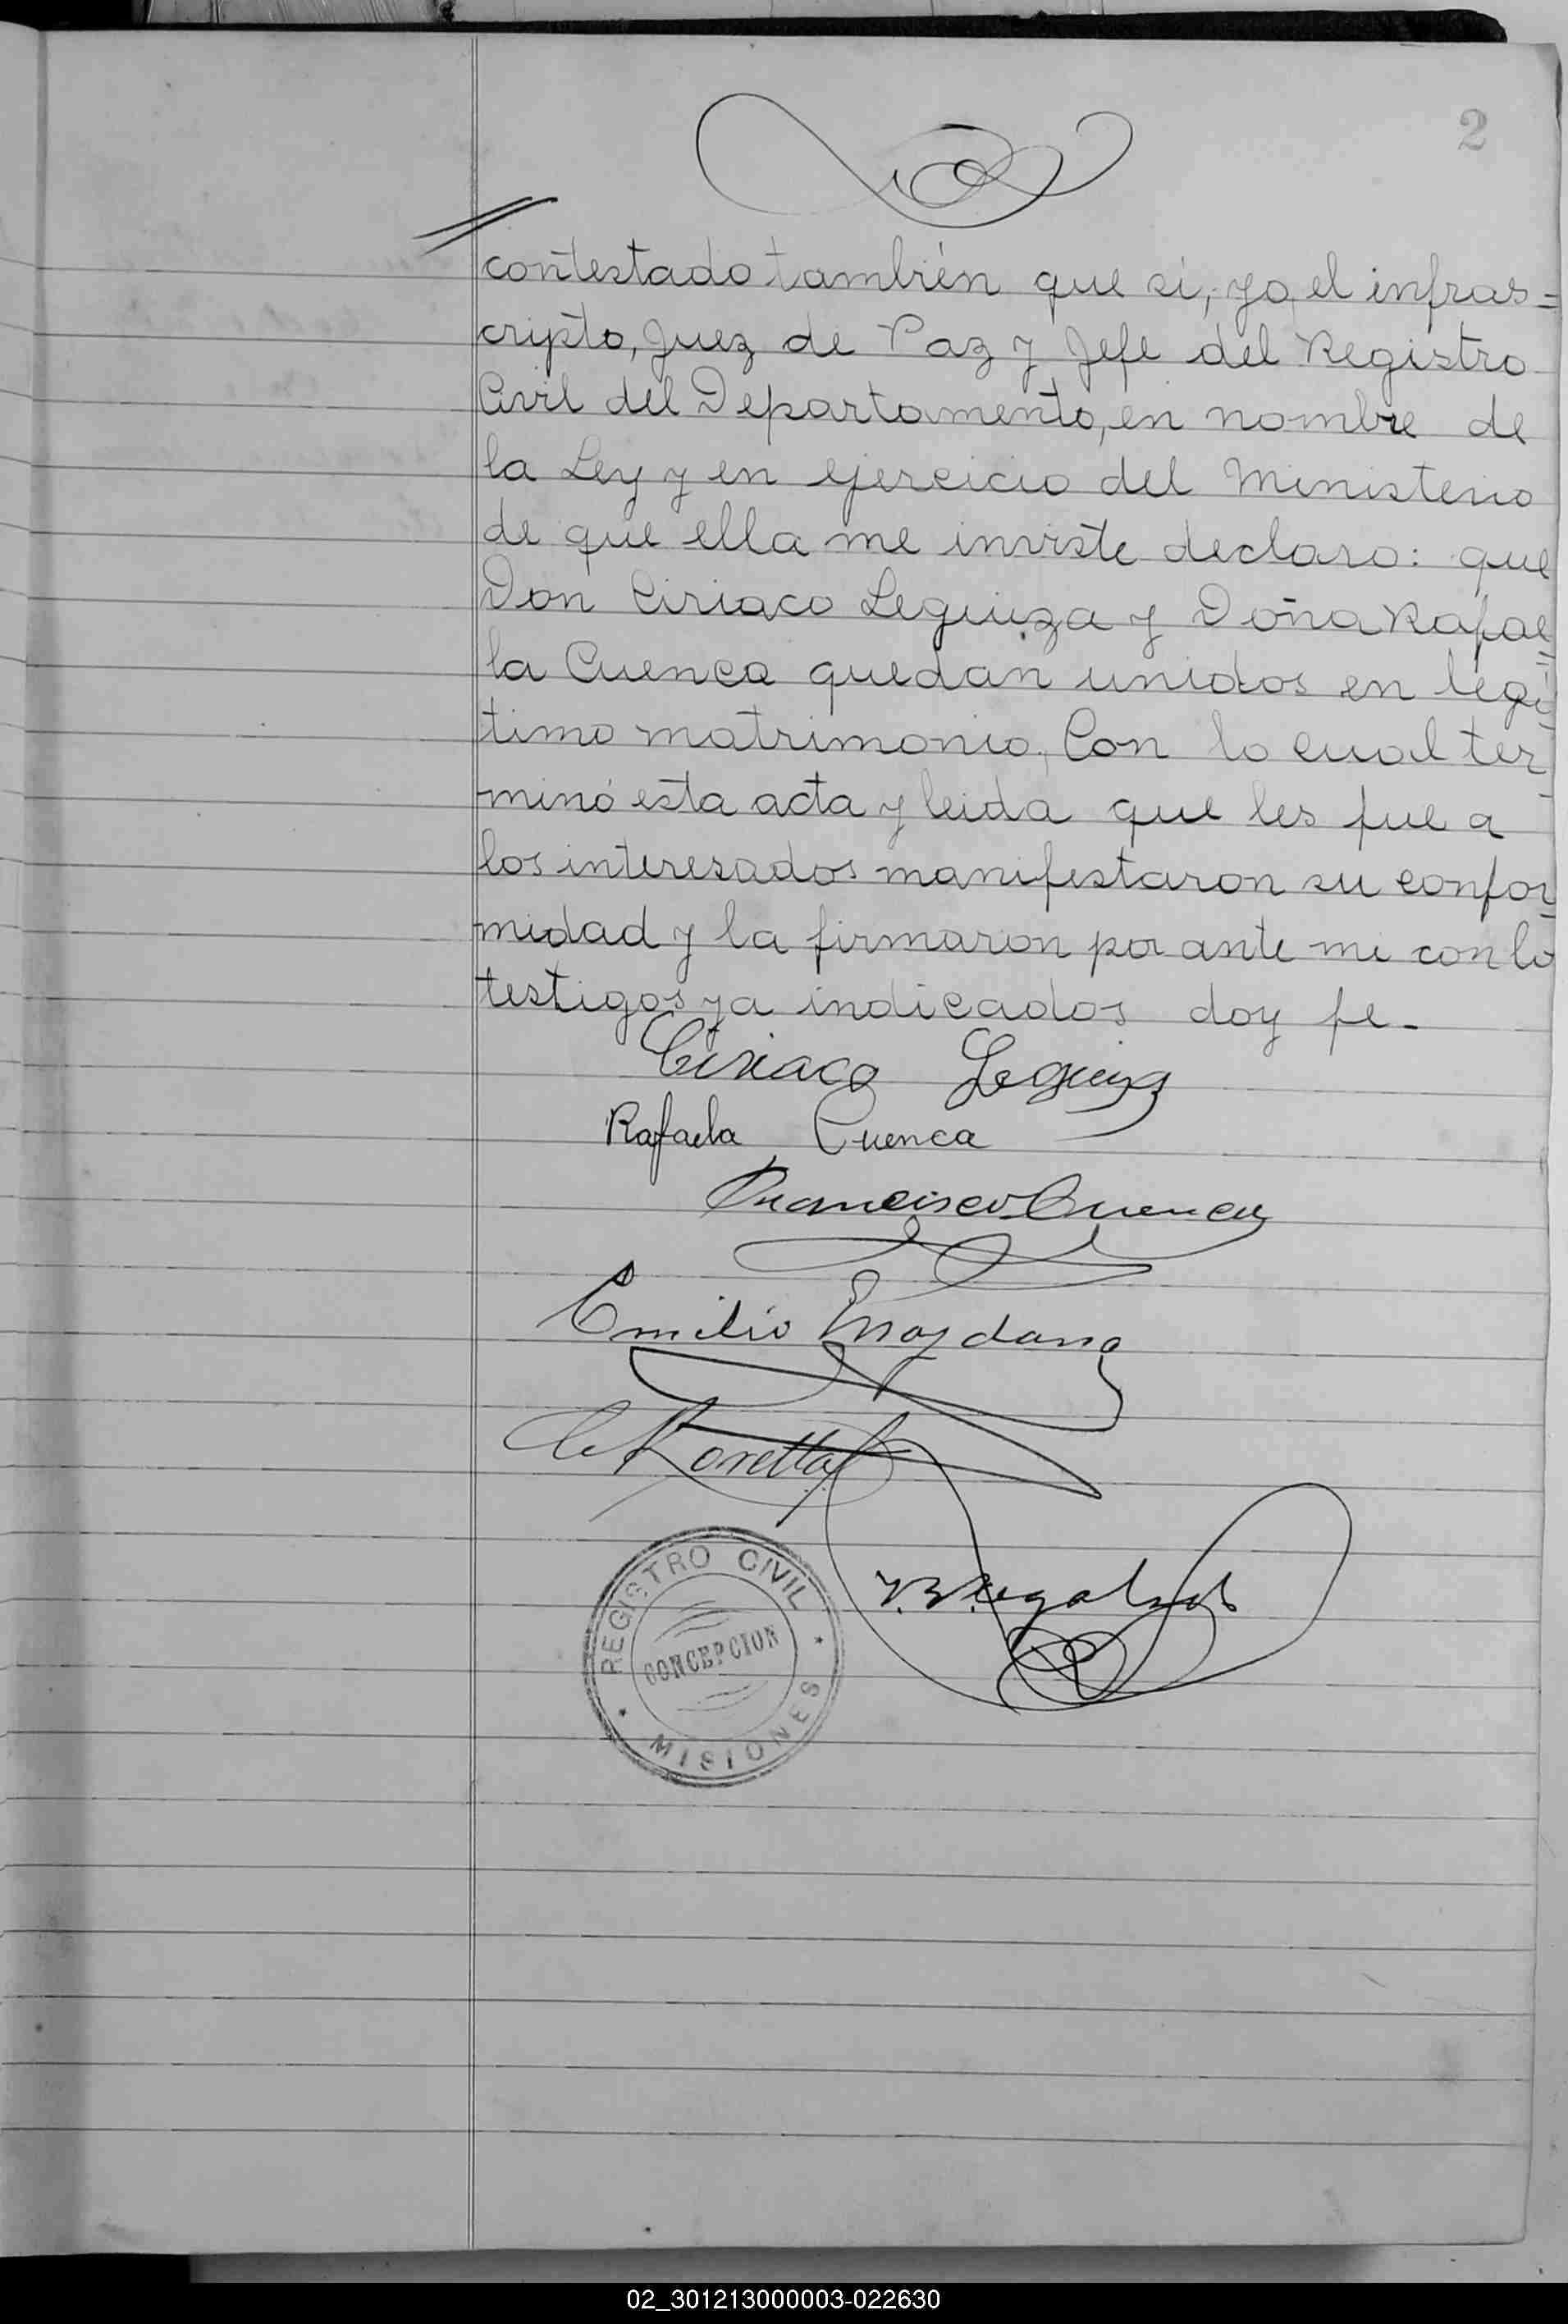 2
contestado también que si, yo, el infras=
cripto, Juez de Paz y Jefe del Registro
Civil del Departamento, en nombre de
la Ley y en ejercicio del Ministerio
de que ella me inviste declaro: que
Don Ciriaco Leguiza y Doña Rafae=
la Cuenca quedan unidos en legi=
timo matrimonio. Con lo cual ter-
minó esta acta y leida que les fue a
los interesados manifestaron su confor-
midad y la firmaron por ante mi con lo
testigos ya indicados doy fe.-
Ciriaco Leguiza
Rafaela Cuenca
Francisco Cuenca
Emilio Maydana
REGISTRO CIVIL
CONCEPCION
MISIONES
02_301213000003-022630